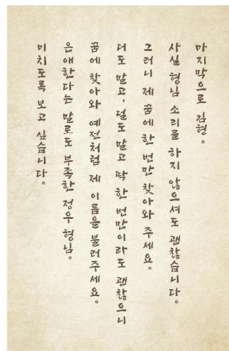 마지막으로 김형.
사실 형님 소리를 하지 않으셔도 괜찮습니다.
그러니 제 꿈에 한 번만 찾아와 주세요.
더도 말고, 덜도 말고 딱 한 번만이라도 괜찮으니
꿈에 찾아와 예전처럼 제 이름을 불러주세요.
은애한다는 말로도 부족한 정우 형님.
미치도록 보고 싶습니다.